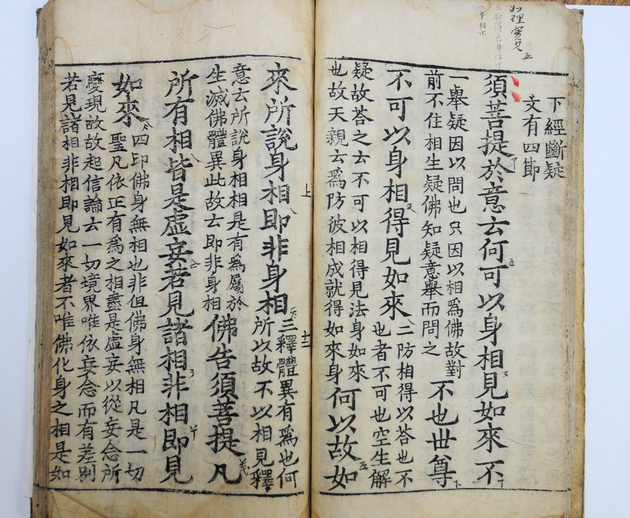 如理實見
下經斷疑
文有四節
須菩提於意云何可以身相見如來不
一舉疑因以問也只因以相爲佛故對
前不住相生疑佛知疑意舉而問之
不也世尊
不可以身相得見如來
二防相得以荅也不
也者不可也空生解
疑故荅之云不可以相得見法身如來
也故天親云爲防彼相成就得如來身
何以故如
上
十二
來所說身相即非身相
三釋體異有爲也何
所以故不以相見釋
意云所說身相相是有爲屬於
生滅佛體異此故云即非身相
佛告須菩提凡
所有相皆是虛妄若見諸相非相即見
如來
四印佛身無相也非但佛身無相凡是一切
聖凡依正有爲之相盡是虛妄以從妄念所
變現故故起信論云一切境界唯依妄念而有差別
若見諸相非相即見如來者不唯佛化身之相是如